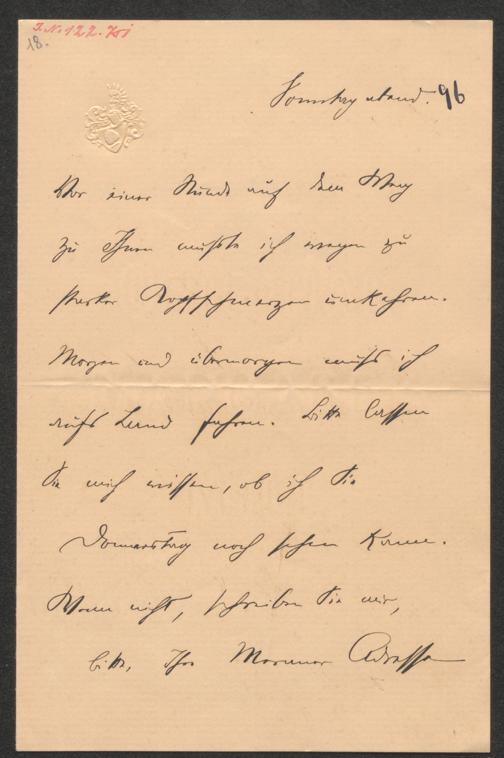 J.N. 122.751
18.
Sonntag abend. 96
Vor einer Stunde auf dem Weg
zu Ihnen mußte ich wegen zu
starker Kopfschmerzen umkehren.
Morgen und übermorgen muß ich
aufs Land fahren. Bitte lassen
Sie mich wissen, ob ich Sie
Donnerstag noch sehen kann.
Wenn nicht, schreiben Sie mir,
bitte, Ihre Meraner Adresse